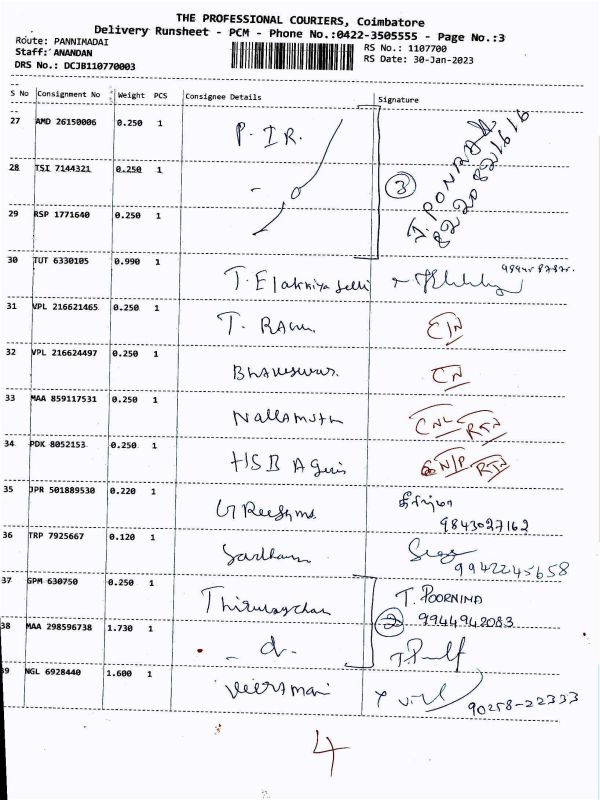 THE PROFESSIONAL COURIERS, Coimbatore
Delivery Runsheet - PCM - Phone No.:0422-3505555 - Page No.:3
Route: PANNIMADAI RS No.: 1107700
Staff: ANANDAN RS Date: 30-Jan-2023
DRS No.: DCJB110770003
S No Consignment No Weight PCS Consignee Details Signature
27 AMD 26150006 0.250 1 P. IR.
28 TSI 7144321 0.250 1 3 J. PONRAJ 8220821616
29 RSP 1771640 0.250 1
30 TUT 6330105 0.990 1 T. Elakkiya Selvi
31 VPL 216621465 0.250 1 T. Ragu
32 VPL 216624497 0.250 1 Bhaveswar. CN
33 MAA 859117531 0.250 1 Nallamuth CNL RTN
34 PDK 8052153 0.250 1 HSB RTN
35 JPR 501889530 0.220 1 G Reeshma
9843027162
36 TRP 7925667 0.120 1
9942245658
37 GPM 630750 0.250 1 T. POORNIMA
2 9944942083
38 MAA 298596738 1.730 1 - do -
39 NGL 6928440 1.600 1 Veeramani
90258-22333
4